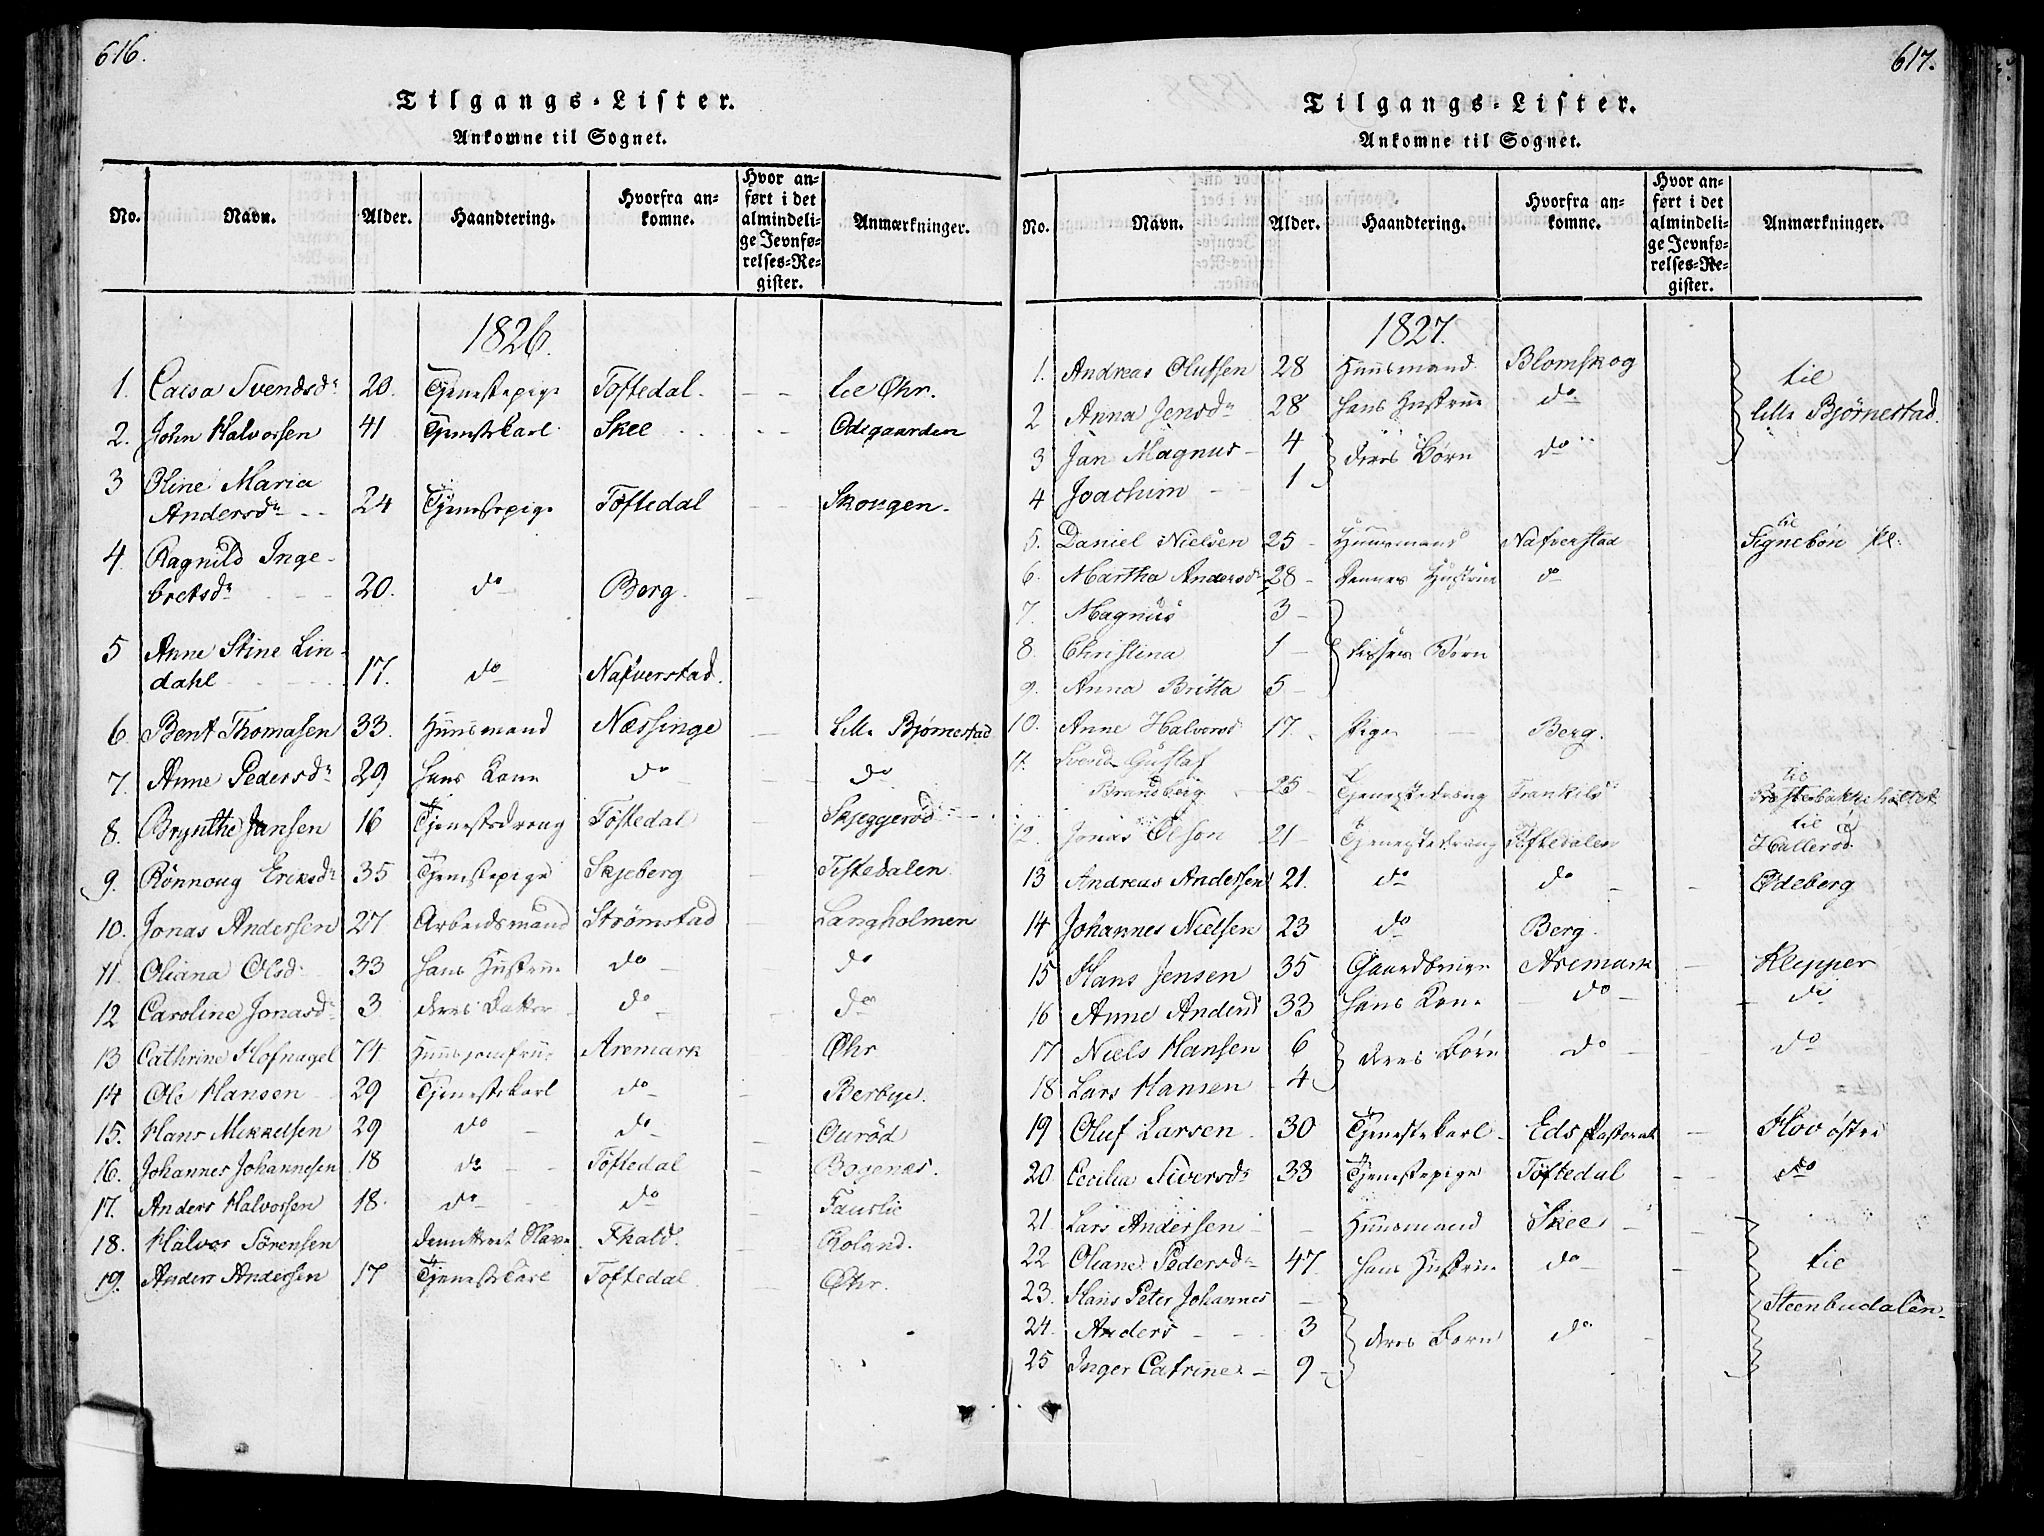 616.
Tilgangs-Lister.
Ankomne til Sognet.
No. Navn. Alder. Haandtering. Hvorfra ankomne. Hvor anført i det almindelige Jevnførelses-Register. Anmærkninger.
1826.
1. Caisa Svendsdr 20. Tjenestepige Toftedal. - - lie Øhr.
2. John Halvorsen 41 Tjenestekarl Skee - - Ødegaarden
3 Oline Maria
Andersdr - - 24 Tjenestepige Toftedal - - Skougen.
4 Ragnild Inge-
bretsdr 20. do Berg.
5 Anne Stine Lin-
dahl 17. do Nafverstad.
6. Bent Thomasen 33. Huusmand Næssinge Lille Bjørnestad
7. Anne Pedersdr 29 hans Kone do do
8. Brynthe Jansen 16 Tjenestedreng Toftedal Skjeggerød
9. Rönnoug Eriksdr 35 Tjenestepige Skjeberg Tistedalen
10. Jonas Andersen 27 Arbeidsmand Strömstad Langholmen
11. Oliana Olsdr 33 hans Hustrue do do
12 Caroline Jonasdr 3 deres Datter do do
13 Cathrine Hofnagel 74. Huusjomfrue Aremark Øhr
14 Ole Hansen 29 Tjenestekarl do Berbye.
15. Hans Mikkelsen 29 do do Ouröd
16. Johannes Johannesen 18 do Töftedal Bøgenæs.
17. Anders Halvorsen 18. do do Fauslie
18. Halvor Sörensen demitteret Slave Fhald. Roland.
19. Anders Andersen 17 Tjenestekarl Toftedal Øhr.
617.
Tilgangs-Lister.
Ankomne til Sognet.
No. Navn. Alder. Haandtering. Hvorfra ankomne. Hvor anført i det almindelige Jevnførelses-Register. Anmærkninger.
1827.
1. Andreas Olufsen 28 Huusmand Blomskog til
2 Anna Jensdr 28 hans Hustrue do lille Bjørnestad.
3 Jan Magnus 4 deres Børn do
4 Joachim - - 1
5. Daniel Nielsen 25 - Huusmand Nafverstad til Signebøn pl.
6. Martha Andersdr 28 - dennes Hustrue do
7. Magnus 3 -
8. Christina 1 - disses Børn
9. Anna Britta 5 -
10. Anne Halvorsd 17. Pige Berg.
11. Svend Gustaf
Brandberg 25 - Tjenestedreng Frankils til Præstebakkehöltet
12. Jonas Olson 21 - Tjenestedreng Töftedalen til Hallerød
13 Andreas Andersen 21. do do Ødeberg
14 Johannes Nielsen 23 do Berg.
15 Hans Jensen 35 Gaardbruger Aremark Klepper
16 Anne Andersd 33 hans Kone do do
17 Niels Hansen 6 deres Børn do do
18 Lars Hansen 4
19 Oluf Larsen 30 Tjenestekarl Eds Pastorat Hov østre
20 Cecilia Siversdr 33 Tjenestepige Töftedal do
21 Lars Andersen - Huusmand Skee
22 Oliane Pedersdr 47. hans Hustrue do til
23. Hans Peter Johannes - Steenbudalen
24. Anders - - 3 deres Børn do
25 Inger Catrine - 9 -